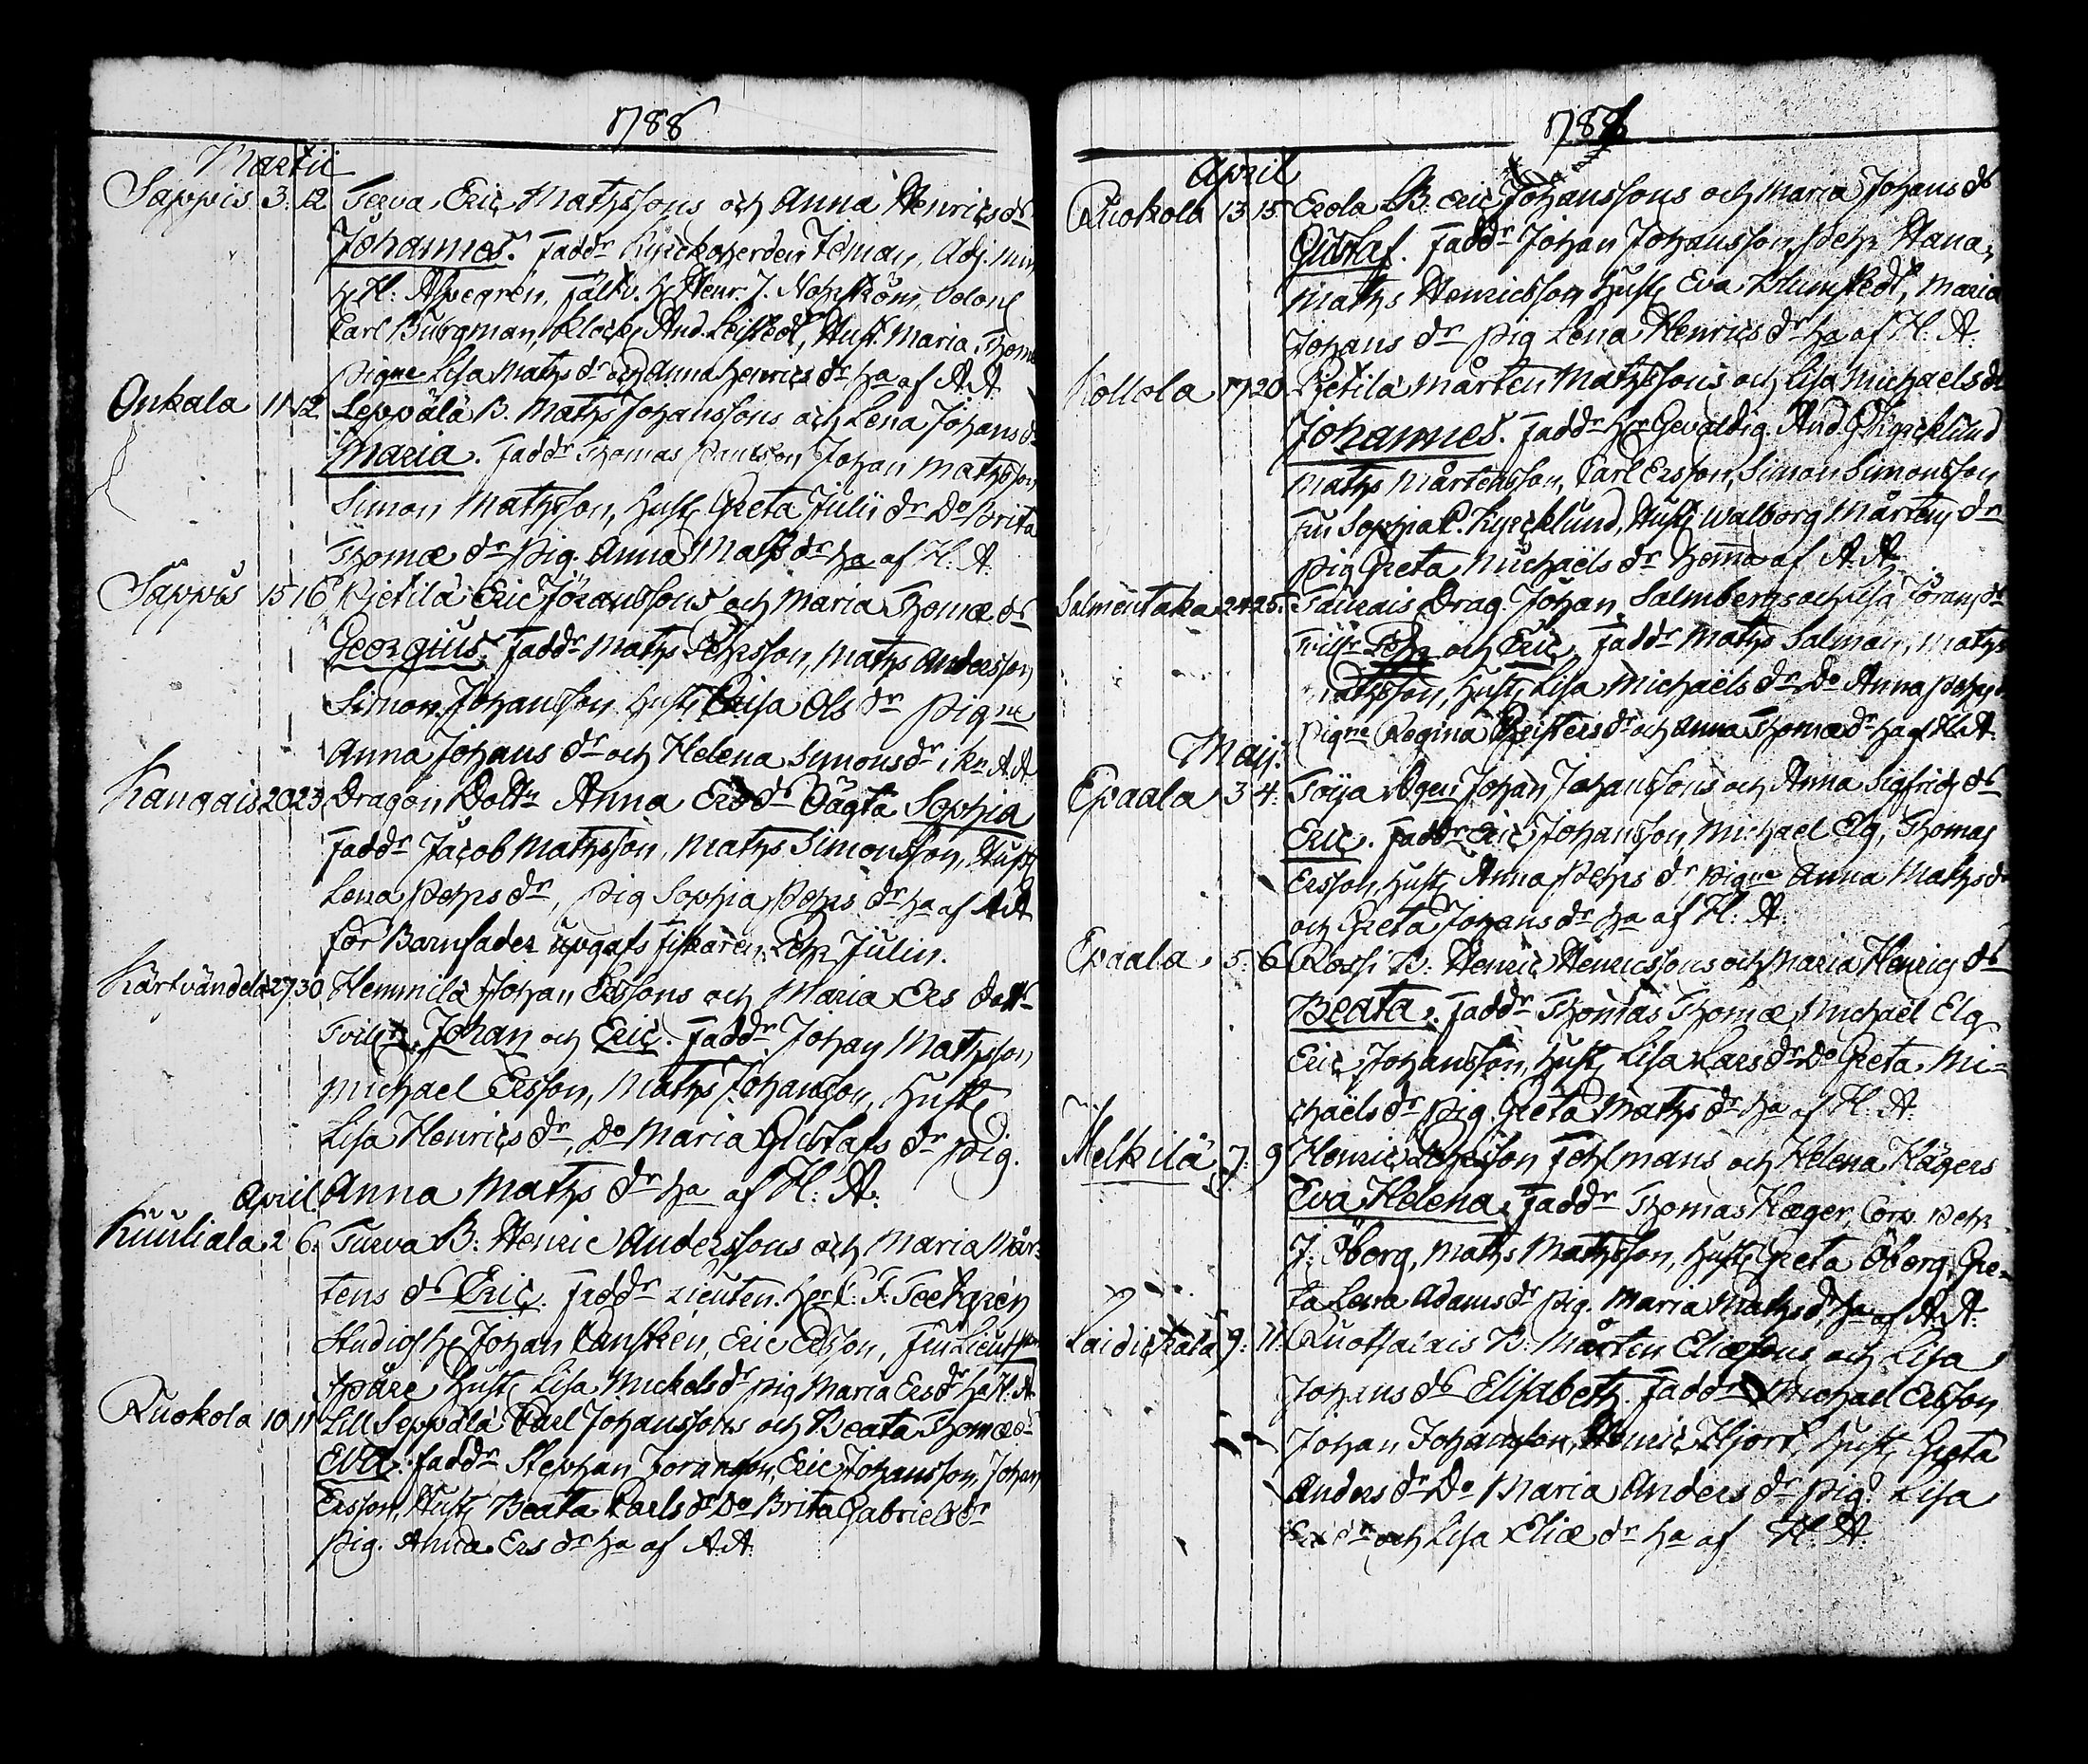 1788
Martii
Säppis 3. 12 Terva Eric Mathssons och Anna Henrics dr
Johannes. Faddr Kyrckoherden Idman, Adj. min
H. H: Alpegren, Fältv. H. Henr. J. Nohrström, Colonl
Carl Burgman, klock. And. Leistedt, Hust. Maria Thom
pigne Lisa Maths dr och Anna Henrics dr ha af A. A.
Onkala 11 12 Seppälä B. Maths Johanssons och Lena Johans dr
Maria. Faddr Thomas Paulsson Johan Mathsson
Simon Mathsson, Hust. Greta Julii dr Do Brita
Thomæ dr pig. Anna Math dr ha af H: A:
Säppis 15 16 Pietilä Eric Jöranssons och Maria Thomæ dr
Georgius. Faddr Maths Pehrsson, Maths Andersson
Simon Johansson Hust. Caisa Ols dr pigne
Anna Johans dr och Helena Simons dr, hn A. A
Kangais 20 23 Dragon Dottn Anna Ersdr Oägta Sophia
Faddr Jacob Mathsson, Maths Simonsson, Hust.
Lena Pehrs dr, pig Sophia Pehrs dr ha af A. A
för Barnfader upgafs fiskaren Pehr Julin.
Kärtvändelä 27 30 Hemmilä Johan Erssons och Maria Ers dottr
Tvillr Johan och Eric. Faddr Johan Mathsson
Michael Ersson, Maths Johansson, Hust.
Lisa Henrics dr, Do Maria Gustafs dr pig.
Anna Maths dr ha af H: A:
April
Kuuliala 2 6 Turva B: Henric Anderssons och Maria Mår-
tens dr Eric. Faddr Lieuten. Herr C: F: Toekgren
Studios H. Johan Ranskén, Eric Ersson, Fru Lieutskan
Späre Hust. Lisa Mickels dr pig Maria Ers dr ha H. A
Ruokola 10 11 Lill Seppälä Carl Johanssons och Beata Thomæ dr
Eva. Faddr Stephan Joransson, Eric Johansson, Johan
Ersson, Hust. Beata Carls dr Do Brita Gabriels dr
pig. Anna Ers dr ha af A. A.
178
April
Ruokola 13 15 Erola B. Eric Johanssons och Maria Johans dr
Gustaf. Faddr Johan Johansson, Pehr Hana,
Maths Henricsson Hust. Eva Blumstedt, Maria
Johans dr pig Lena Henrics dr ha af H. A.
Kollola 17 20 Pietilä Mårten Mathssons och Lisa Michaels dr
Johannes. Faddr Hr Gevaldig. And. Kyrcklund
Maths Mårtensson, Carl Ersson, Simon Simonsson
Fru Sophia C. Kyrcklund, Hust. Walborg Mårtens dr
pig Greta Michaels dr hema af A. A.
Salmentaka 24 25 Taurais Drag. Johan Salmbergs och Lisa Jörans dr
Tvillr Pehr och Eric Faddr Maths Salman, Maths
Mathsson, Hust. Lisa Michaels dr Do Anna Pehrs
pigne Regina Christers dr och Anna Thomæ dr ha af H. A
Maij
Epaala 3 4. Töija Agen Johan Johanssons och Anna Sigfrids dr
Eric. Faddr Eric Johansson, Michael Elg, Thomas
Ersson, Hust. Anna Pehrs dr pigne Anna Maths dr
och Greta Johans dr ha af H. A.
Epaala 5. 6 Rossi B: Henric Henricssons och Maria Henrics dr
Beata. Faddr Thomas Thomæ, Michael Elg
Eric Johansson, Hust. Lisa Lars dr Do Greta Mi-
chaels dr pig. Greta Maths dr ha af H: A.
Melkilä 7. 9 Henric Fehlmans och Helena Hägers
Eva Helena. Faddr Thomas Hæger, Corp. Pehr
J: Öberg, Maths Mathsson, Hust. Greta Öberg, Gre-
ta Lena Adams dr pig. Maria Maths dr ha af A. A.
Laidickala 9. 11. Ruotsalais B: Mårten Eliæsons och Lisa
Johans dr Elisabeth. Faddr Michael Ersson
Johan Johansson, Henric Hjort, Hust. Greta
Anders dr Do Maria Anders dr pig. Lisa
Ers dr och Lisa Eliæ dr ha af H. A.